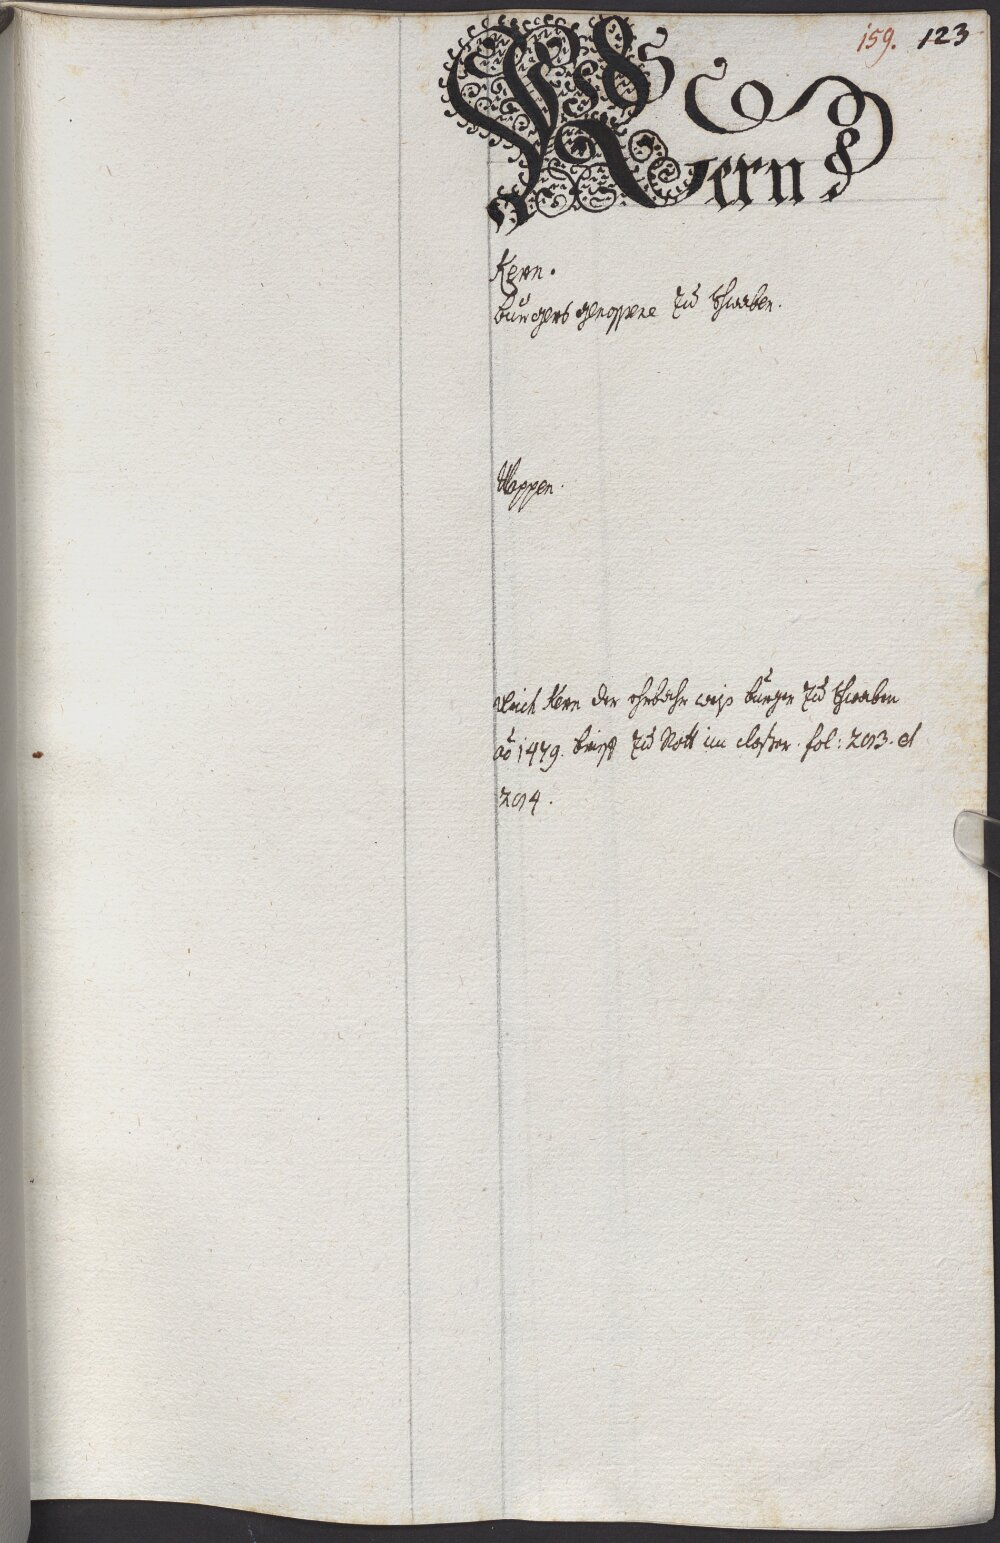 159. 123
Kern
Kern.
burgers genossene zu Schwaben.
Wappen.
Ulrich Kern der ehrbahr weis burger zu Schwaben
ao 1479. brieff zu Rott im closter fol: 203. et
204.